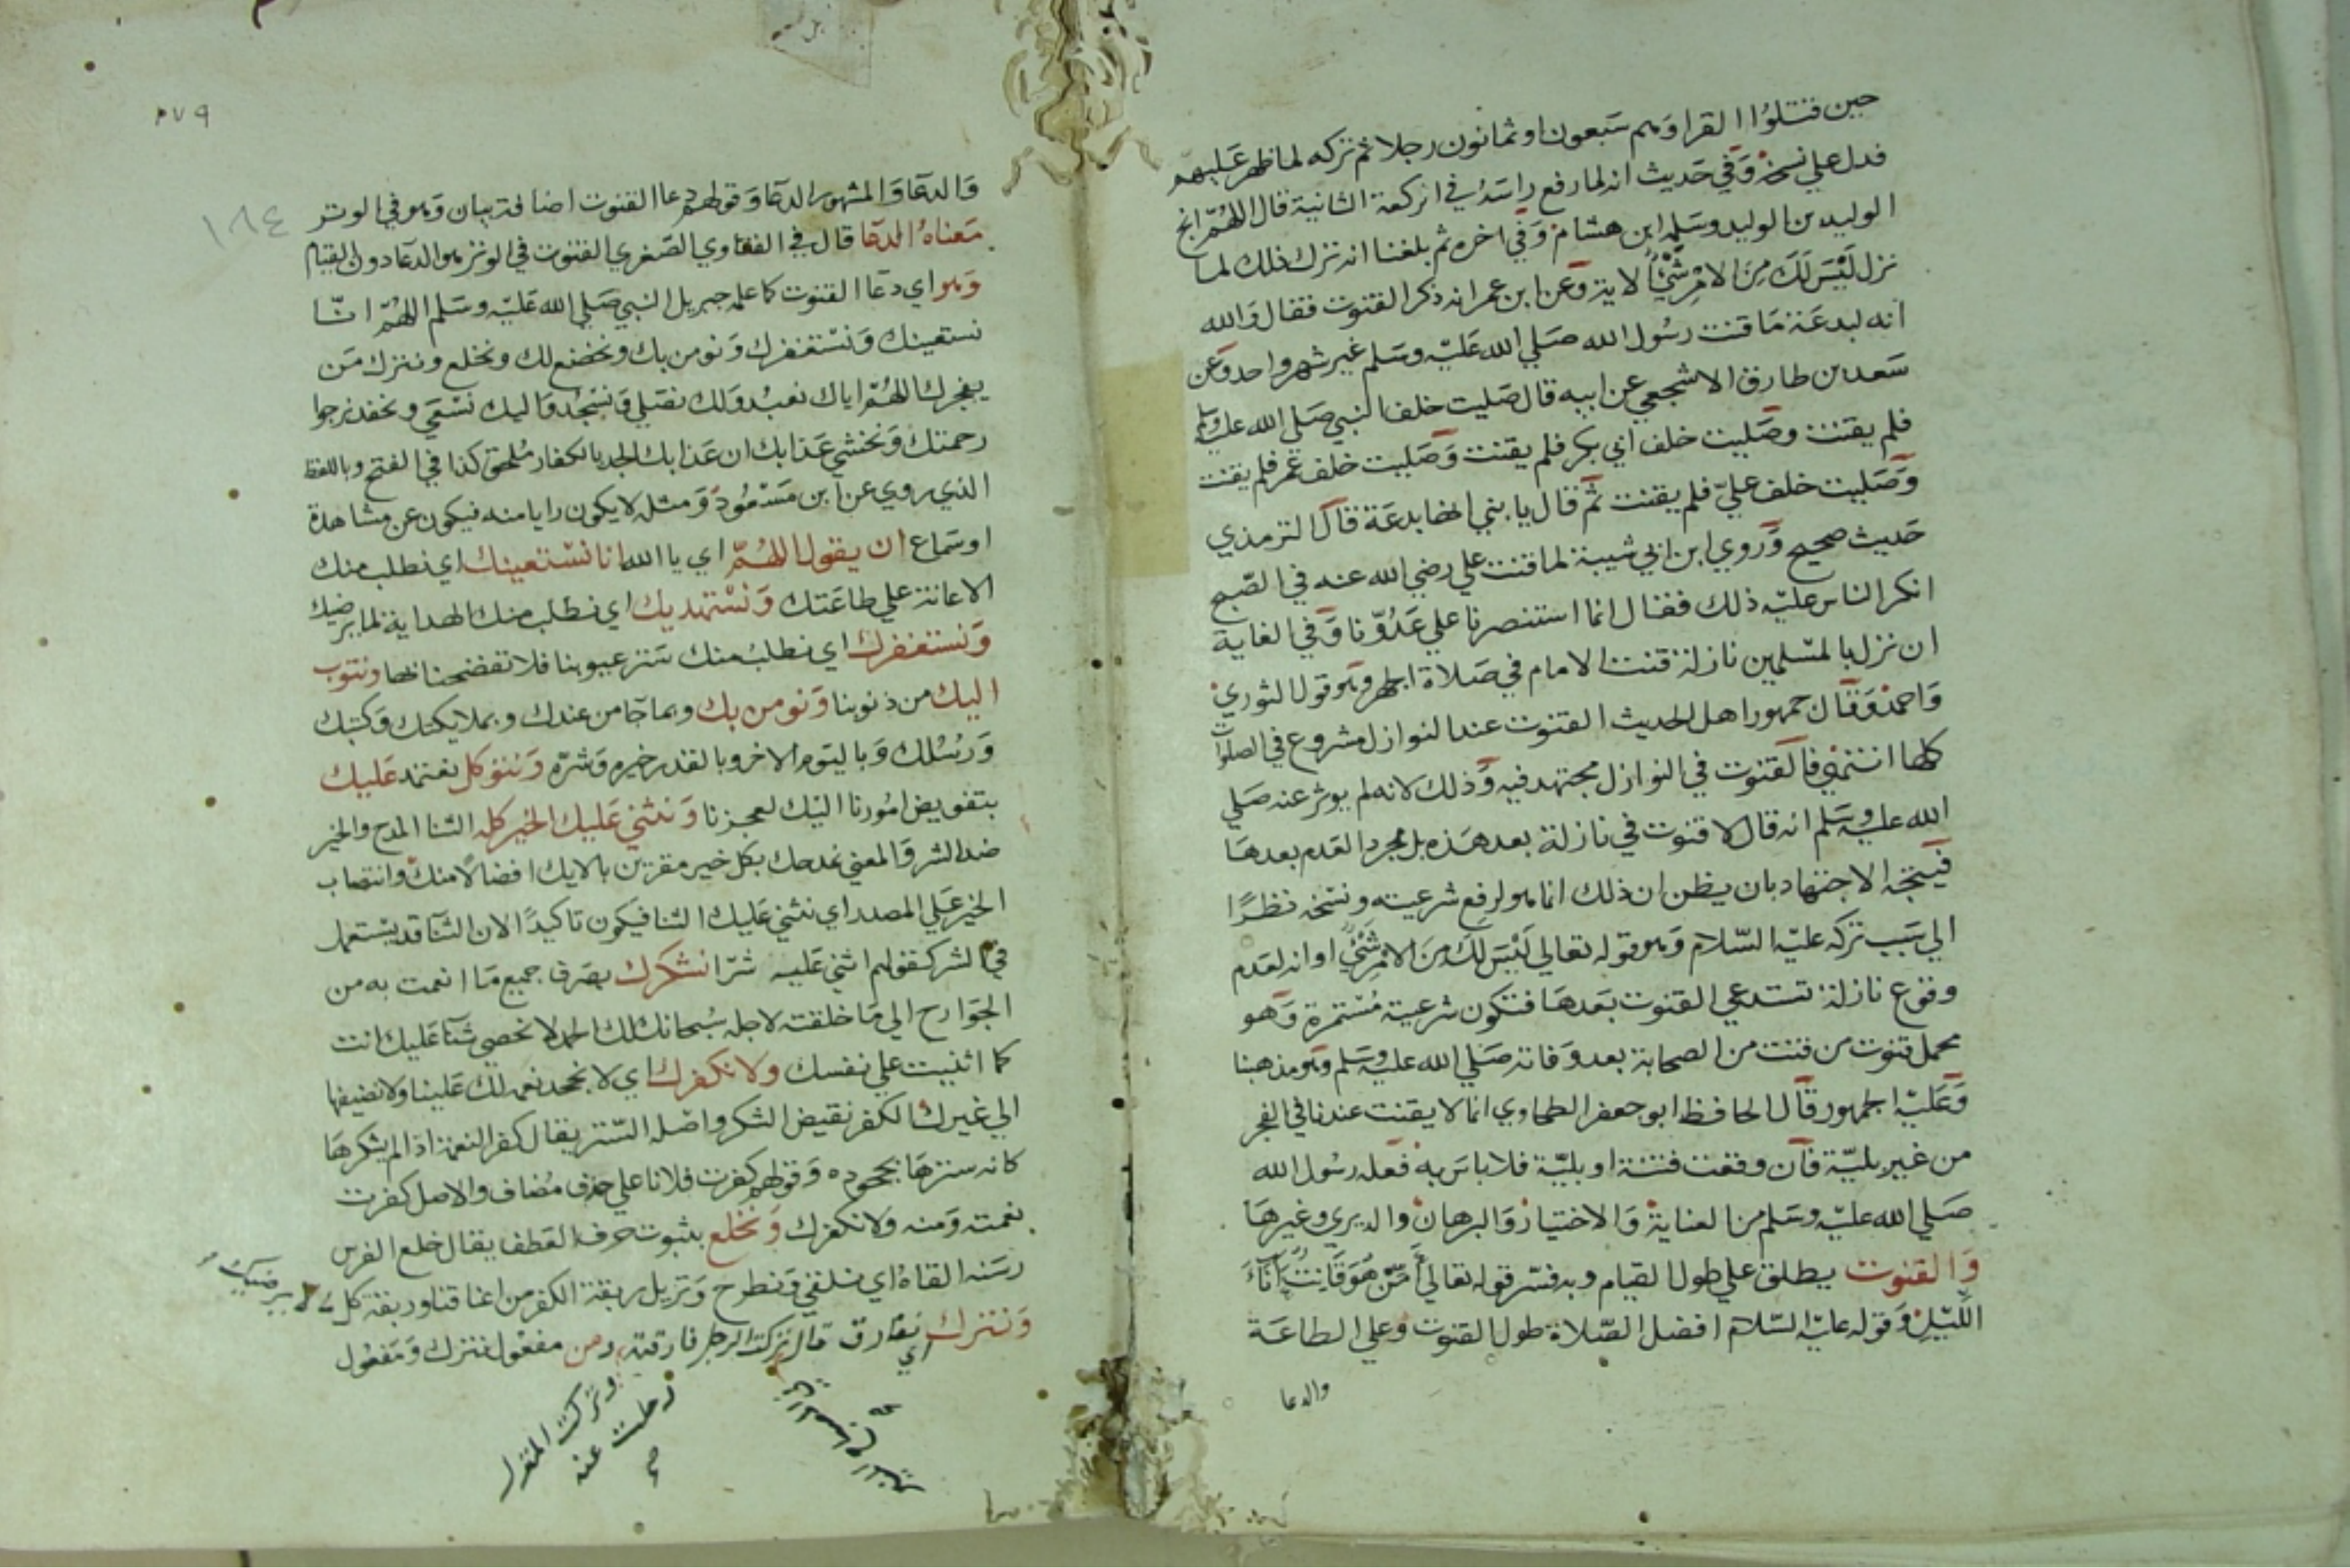 حين قتلوا القرا وهم سبعون او ثمانون رجلا ثم تركه لما ظهر عليهم
فدل علي نسخه وفي حديث انه لما رفع راسه في الركعة الثانية قال اللهم انج
الوليد بن الوليد وسلمة ابن هشام وفي اخره ثم بلغنا انه ترك ذلك لما
نزل ليس لك من الامر شيئ الاية وعن ابن عمر انه ذكر القنوت فقال والله
انه لبدعة ما قنت رسول الله صلي الله عليه وسلم غير شهر واحد وعن
سعد بن طارق الاشجعي عن ابيه قال صليت خلف النبي صلي الله عليه وسلم
فلم يقنت وصليت خلف ابي بكر فلم يقنت وصليت خلف عمر فلم يقنت
وصليت خلف علي فلم يقنت ثم قال يا بني انها بدعة قال الترمذي
حديث صحيح وروي ابن ابي شيبة لما قنت علي رضي الله عنه في الصبح
انكر الناس عليه ذلك فقال انما استنصرنا علي عدونا وفي الغاية
ان نزل بالمسلمين نازلة قنت الامام في صلاة الجهر وهو قول الثوري
واحمد وقال جمهور اهل الحديث القنوت عند النوازل مشروع في الصلوات
كلها انتهي فالقنوت في النوازل مجتهد فيه وذلك لانه لم يوثر عنه صلي
الله عليه وسلم انه قال لا قنوت في نازلة بعد هذه بل مجرد العدم بعدها
فيتجه الاجتهاد بان يظن ان ذلك انما هو لرفع شرعيته ونسخه نظرا
الي سبب تركه عليه السلام وهو قوله تعالي ليس لك من الامر شئ او انه لعدم
وقوع نازلة تستدعي القنوت بعدها فتكون شرعيته مستمرة وهو
محمل قنوت من قنت من الصحابة بعد وفاته صلي الله عليه وسلم وهو مذهبنا
وعليه الجمهور قال الحافظ ابو جعفر الطحاوي انما لا يقنت عندنا في الفجر
من غير بلية فان وقعت فتنة او بلية فلا باس به فعله رسول الله
صلي الله عليه وسلم من العناية والاختيار والبرهان والديري وغيرها
والقنوت يطلق علي طول القيام وبه فسر قوله تعالي أمن هو قانت آناء
الليل وقوله عليه السلام افضل الصلاة طول القنوت وعلي الطاعة
والدعا
٢٧٩
١٨٤
والدعا والمشهور الدعا وقولهم دعا القنوت اضافة بيان وهو في الوتر
معناه الدعا قال في الفتاوي الصغري القنوت في الوتر هو الدعا دون القيام
وهو اي دعا القنوت كما علمه جبريل النبي صلي الله عليه وسلم اللهم انا
نستعينك ونستغفرك ونومن بك ونخضع لك ونخلع ونترك من
يفجرك اللهم اياك نعبد ولك نصلي ونسجد واليك نسعي ونحفد نرجوا
رحمتك ونخشي عذابك ان عذابك الجد بالكفار ملحق كذا في الفتح وباللفظ
الذي روي عن ابن مسعود ومثله لا يكون رايا منه فيكون عن مشاهدة
او سماع ان يقول اللهم اي يا الله انا نستعينك اي نطلب منك
الاعانة علي طاعتك ونستهديك اي نطلب منك الهداية لما يرضيك
ونستغفرك اي نطلب منك ستر عيوبنا فلا تفضحنا بها ونتوب
اليك من ذنوبنا ونومن بك وبما جا من عندك وبملايكتك وكتبك
ورسلك وباليوم الاخر وبالقدر خيره وشره ونتوكل نعتمد عليك
بتفويض امورنا اليك لعجزنا ونثني عليك الخير كله الثنا المدح والخير
ضد الشر والمعني نمدحك بكل خير مقرين بالايك افضالا منك وانتصاب
الخير علي المصدر اي نثني عليك الثنا فيكون تاكيدا الان الثنا قد يستعمل
في الشر كقولهم اثني عليه شرا نشكرك بصرف جميع ما انعمت به من
الجوارح الي ما خلقته لاجله سبحانك لك الحمد لا نحصي ثنا عليك انت
كما اثنيت علي نفسك ولا نكفرك اي لا نجحد نعمه لك علينا ولا نضيفها
الي غيرك الكفر نقيض الشكر واصله الستر يقال كفر النعمة اذا لم يشكرها
كانه سترها بجحوده وقولهم كفرت فلانا علي حذف مضاف والاصل كفرت
نعمته ومنه ولا نكفرك ونخلع بثبوت حرف العطف يقال خلع الفرس
رسنه القاه اي نلقي ونطرح ونزيل ربقة الكفر من اعناقنا وربقة كل ما لا يرضيك
ونترك اي نفارق قال تركت الرجل فارقته ومن مفعول نترك ومفعول
وتركت المنزل
رحلت عنه
صح